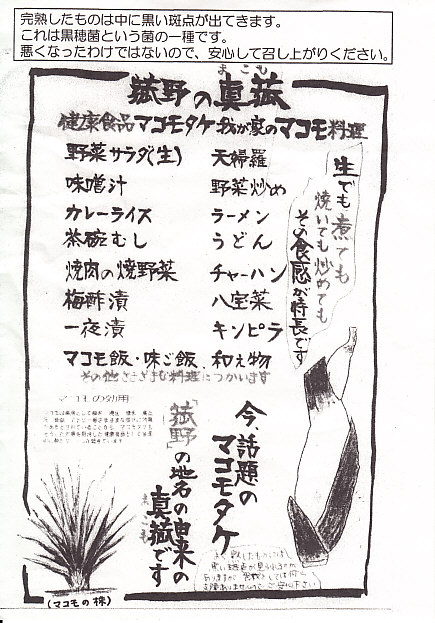 完熟したものは中に黒い斑点が出てきます。
これは黒穂菌という菌の一種です。
悪くなったわけではないので、安心して召し上がりください。
まこも
菰野の真菰
健康食品マコモタケ我が家のマコモ料理
野菜サラダ(生)
天婦羅
味噌汁
野菜炒め
カレーライス
ラーメン
茶碗むし
うどん
焼肉の焼野菜
チャーハン
梅酢漬
八宝菜
一夜漬
キンピラ
マコモ飯・味ご飯・和え物
その他さまざまな料理につかいます
生でも煮ても
焼いても炒めても
その食感が特長です
今、話題の
マコモタケ
「菰野」の地名の由来の
まこも
真菰です
マコモの効用
(マコモの株)